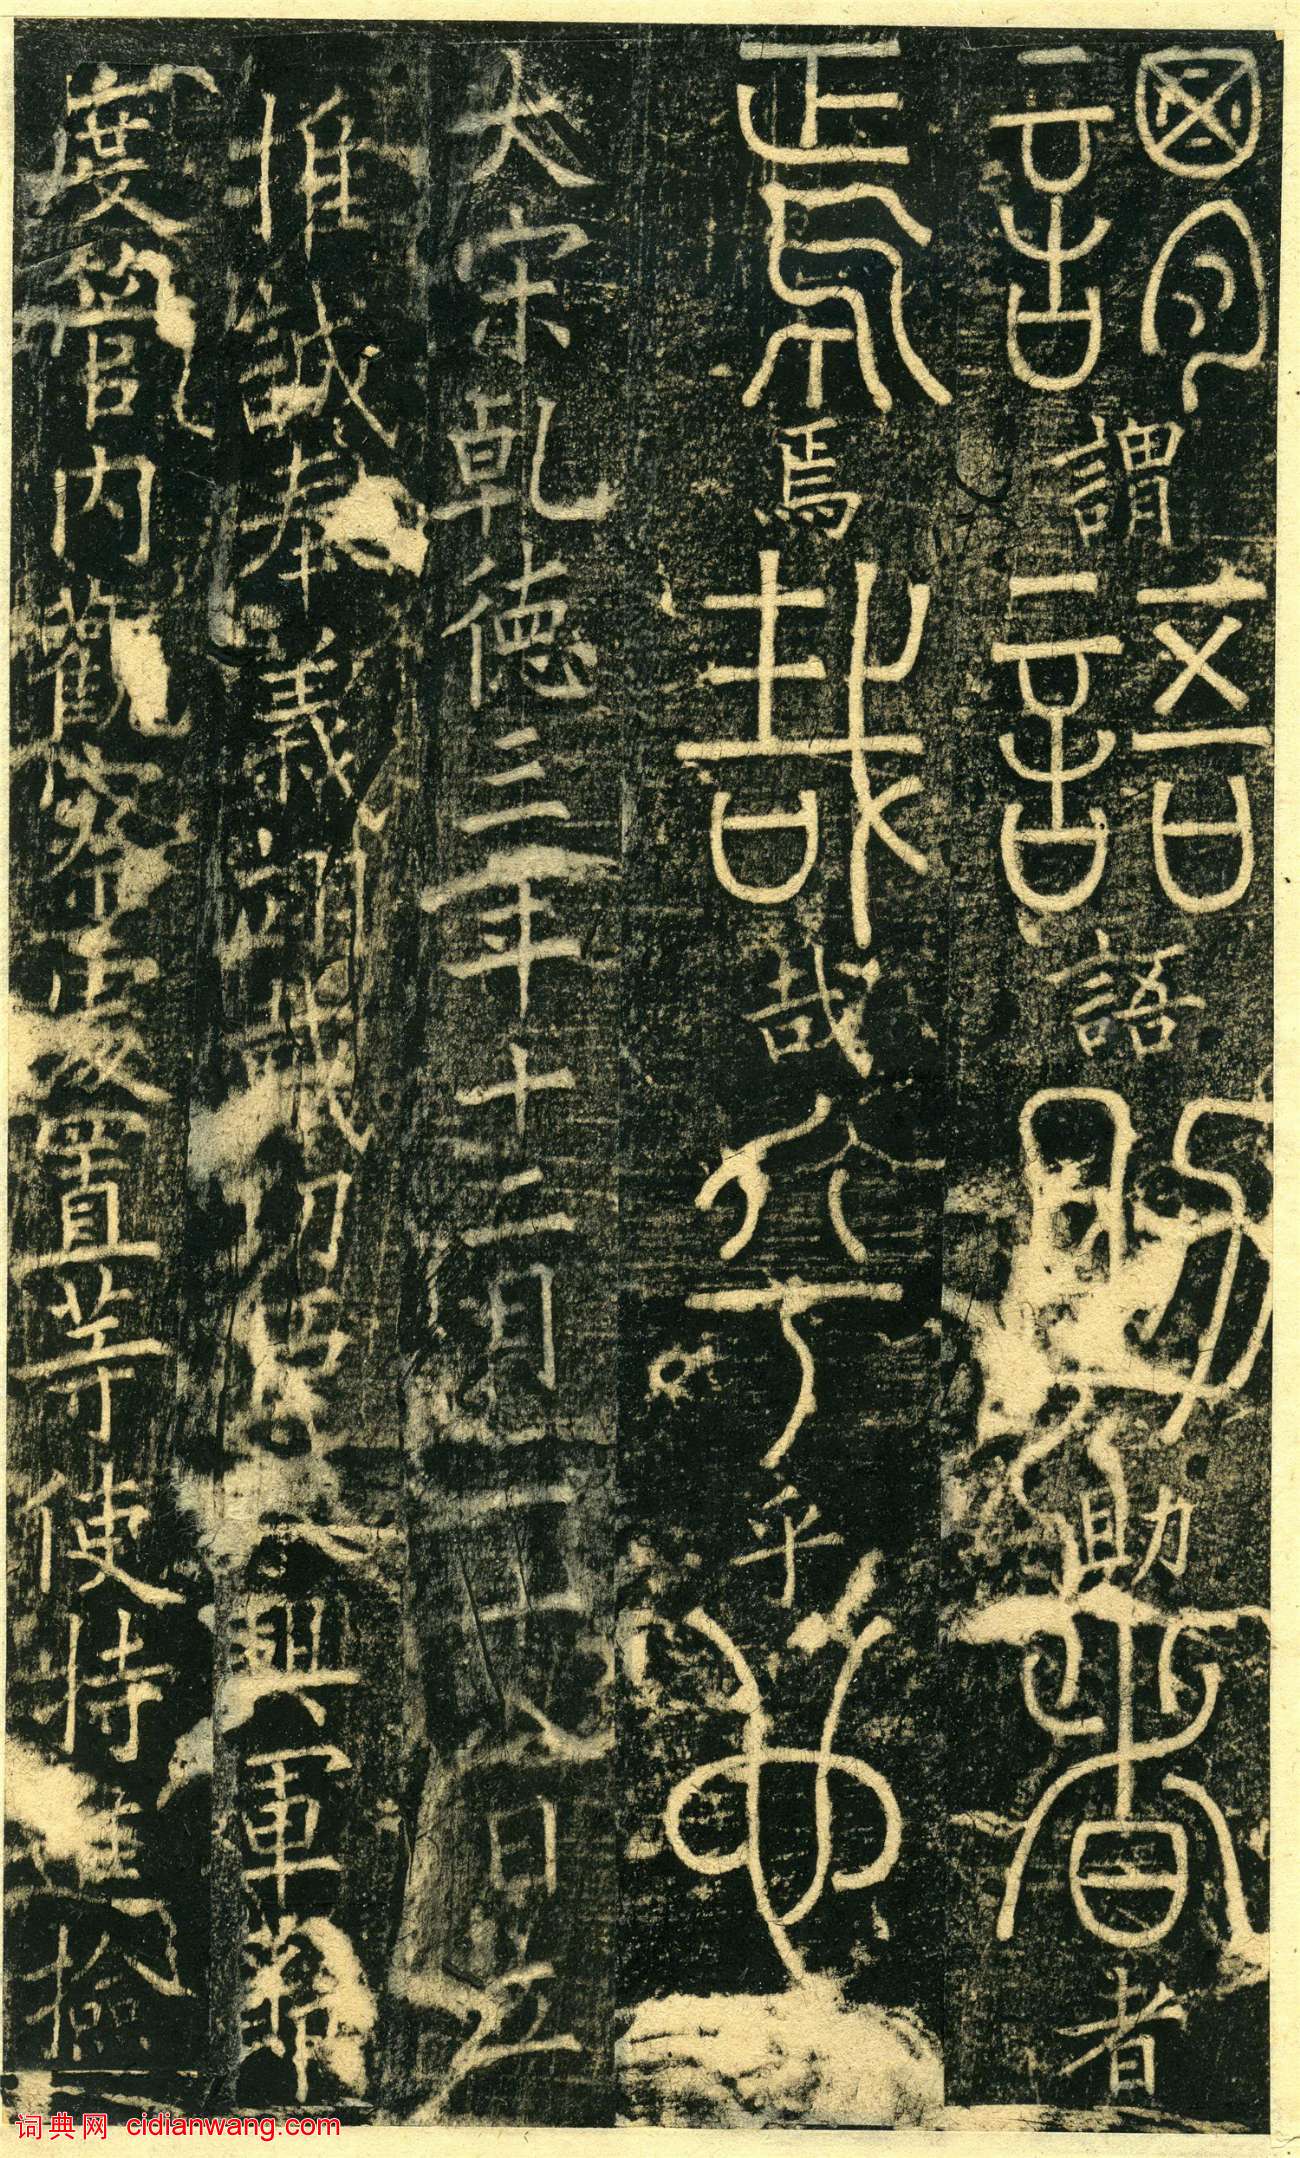 謂謂語語助助者者
焉焉哉哉乎乎也
大宋乾德三年十二月日立
推誠奉義翊戴功臣永興軍節
度管内觀察處置等使特進檢
词典网 cidianwang.com